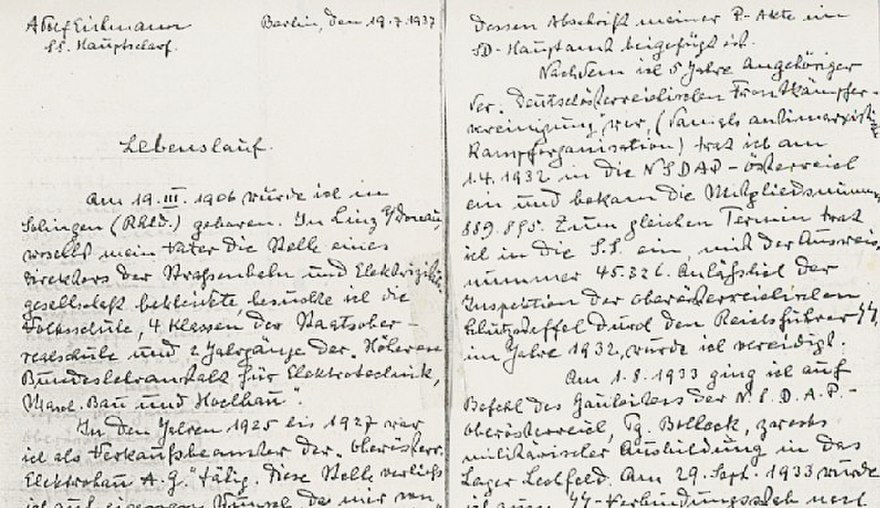 Adolf Eichmann
SS. Hauptscharf.
Berlin, den 19.7.1937
Lebenslauf.
Am 19.III.1906 wurde ich in
Solingen (Rhld.) geboren. In Linz a/Donau,
woselbst mein Vater die Stelle eines
Direktors der Strassenbahn und Elektrizitäts
gesellschaft bekleidete, besuchte ich die
Volksschule, 4 Klassen der Staatsober-
realschule und 2 Jahrgänge der „Höheren
Bundeslehranstalt für Elektrotechnik,
Masch. Bau und Hochbau".
In den Jahren 1925 bis 1927 war
ich als Verkaufsbeamter der „Oberösterr.
Elektrobau A.G." tätig. Diese Stelle verliess
ich auf eigenen Wunsch, da mir von
Dessen Abschrift meiner P-Akte im
SD-Hauptamt beigefügt ist.
Nachdem ich 5 Jahre Angehöriger
der „Deutschösterreichischen Frontkämpfer-
vereinigung" war, (damals antimarxistische
Kampforganisation) trat ich am
1.4.1932 in die NSDAP-Österreich
ein und bekam die Mitgliedsnummer
889.895. Zum gleichen Termin trat
ich in die SS. ein, mit der Ausweis-
nummer 45.326. Anlässlich der
Inspektion der oberösterreichischen
Schutzstaffel durch den Reichsführer SS
im Jahre 1932, wurde ich vereidigt.
Am 1.8.1933 ging ich auf
Befehl des Gauleiters der N.S.D.A.P.-
Oberösterreich, Pg. Bolleck, zwecks
militärischer Ausbildung in das
Lager Lechfeld. Am 29. Sept. 1933 wurde
ich zum SS-Verbindungsstab nach